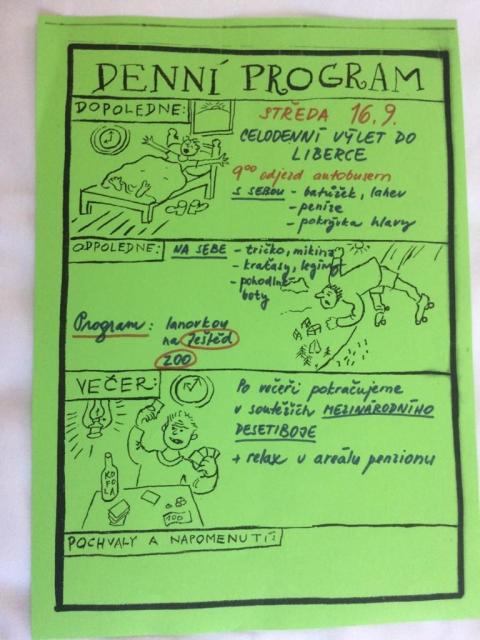 DENNÍ PROGRAM
DOPOLEDNE:
STŘEDA 16.9.
CELODENNÍ VÝLET DO
LIBERCE
9⁰⁰ odjezd autobusem
S SEBOU - batůžek, lahev
- peníze
- pokrývka hlavy
ODPOLEDNE:
NA SEBE - tričko, mikina
- kraťasy, legíny
- pohodlné
boty
Program: lanovkou
na Ještěd
ZOO
VEČER:
Po večeři pokračujeme
v soutěžích MEZINÁRODNÍHO
DESETIBOJE
+ relax v areálu penzionu
KOFOLA
100
POCHVALY A NAPOMENUTÍ: